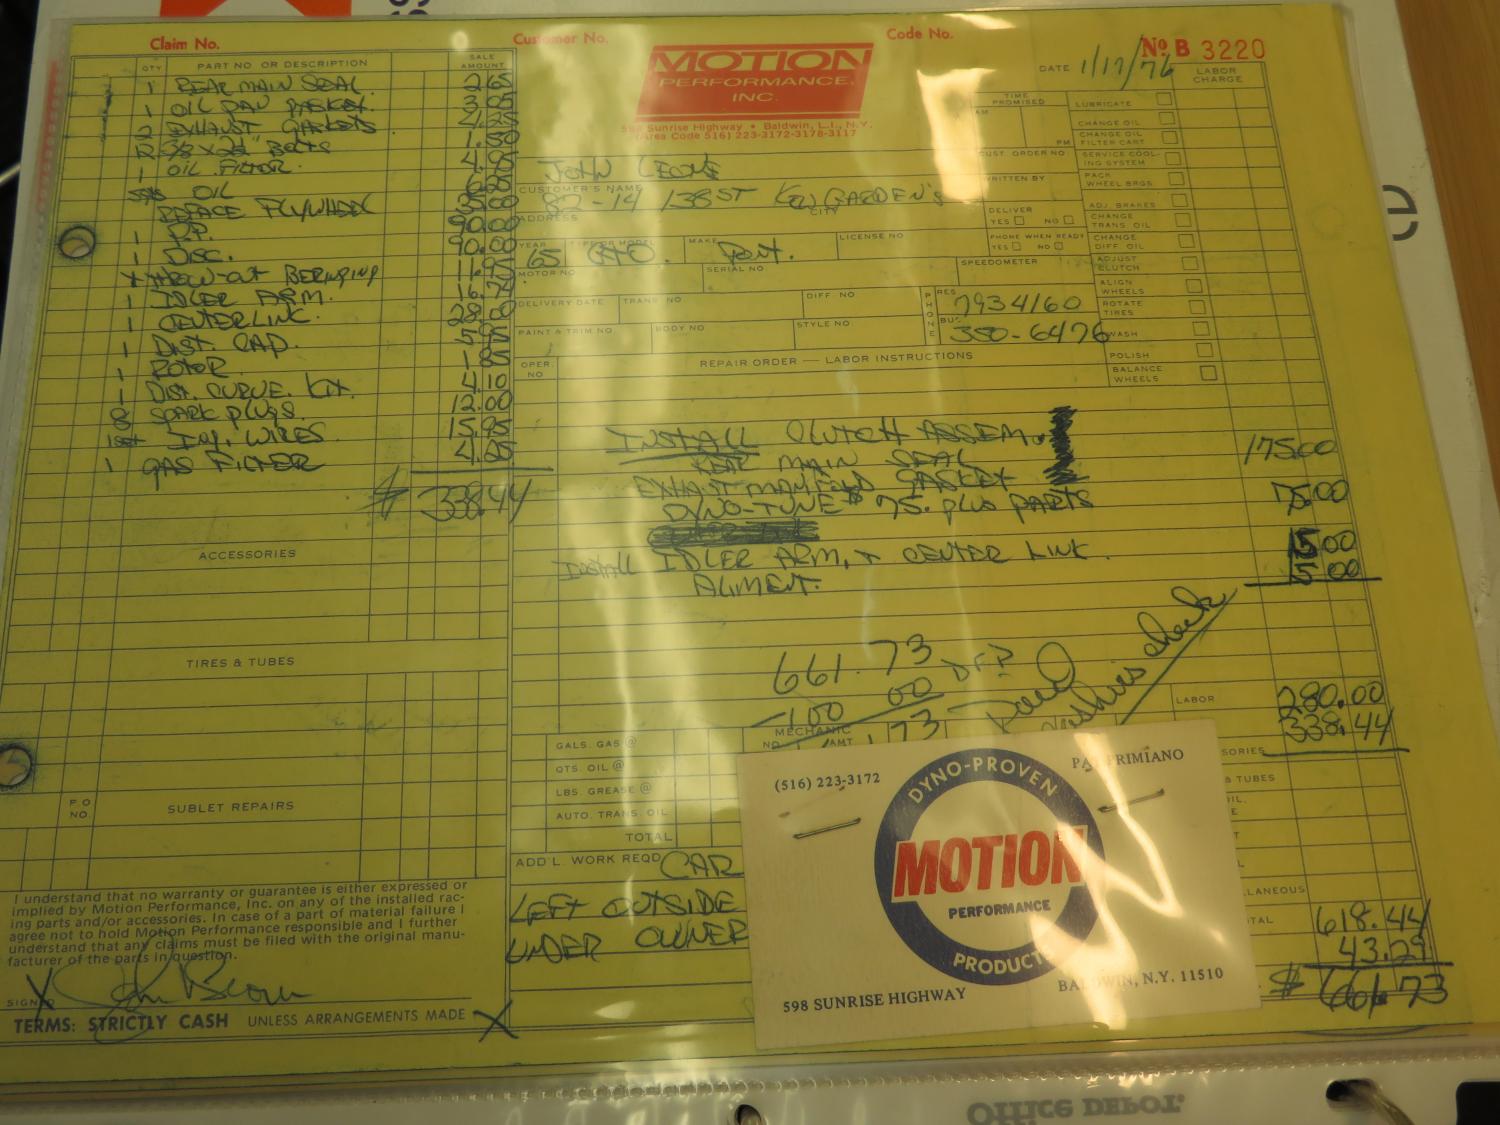 Claim No.
Customer No.
Code No.
No B 3220
QTY PART NO OR DESCRIPTION SALE AMOUNT
1 REAR MAIN SEAL 2.65
1 OIL PAN GASKET. 3.95
2 EXHAUST GASKETS 4.25
BOLTS 1.50
1 OIL FILTOR. 4.95
OIL
REFACE FLYWHEEL 35.00
1 P.P. 90.00
1 DISC. 90.00
THROW-OUT BERRING 11.95
1 IDLER ARM.
1 CENTERLINK. 28.00
1 DIST. CAP. 5.95
1 ROTOR. 1.85
1 DIST. CURVE. KIT. 4.10
8 SPARK PLUGS. 12.00
1 set IGN. WIRES 15.95
1 GAS FILTER 4.25
$ 338.44
ACCESSORIES
TIRES & TUBES
P O NO.
SUBLET REPAIRS
I understand that no warranty or guarantee is either expressed or
implied by Motion Performance, Inc. on any of the installed rac-
ing parts and/or accessories. In case of a part of material failure I
agree not to hold Motion Performance responsible and I further
understand that any claims must be filed with the original manu-
facturer of the parts in question.
SIGNED X
TERMS: STRICTLY CASH UNLESS ARRANGEMENTS MADE X
MOTION
PERFORMANCE,
INC.
598 Sunrise Highway • Baldwin, L.I., N.Y.
(Area Code 516) 223-3172-3178-3117
DATE 1/17/76
LABOR CHARGE
TIME PROMISED
AM
PM
JOHN LEONE
CUSTOMER'S NAME
82-14 138 ST KEW GARDEN'S
ADDRESS CITY
CUST. ORDER NO.
WRITTEN BY
DELIVER
YES NO
YEAR TYPE OR MODEL MAKE LICENSE NO
65 GTO. Pont.
PHONE WHEN READY
YES NO
MOTOR NO SERIAL NO SPEEDOMETER
DELIVERY DATE TRANS NO DIFF. NO
PHONE RES 7934160
PAINT & TRIM NO. BODY NO STYLE NO.
BUS 350-6476
LUBRICATE
CHANGE OIL
CHANGE OIL FILTER CART
SERVICE COOL-
ING SYSTEM
PACK WHEEL BRGS.
ADJ. BRAKES
CHANGE TRANS. OIL
CHANGE DIFF. OIL
ADJUST CLUTCH
ALIGN WHEELS
ROTATE TIRES
WASH
POLISH
BALANCE WHEELS
OPER. NO
REPAIR ORDER — LABOR INSTRUCTIONS
INSTALL CLUTCH ASSEM. 175.00
REAR MAIN SEAL
EXHAUST MANIFOLD GASKET
DYNO-TUNE $75. plus PARTS 75.00
INSTALL IDLER ARM, + CENTER LINK. 15.00
ALIMENT. 15.00
661.73
-100 00 DEP
Paid
check
LABOR 280.00
338.44
MECHANIC NO. AMT
GALS. GAS @
QTS. OIL @
LBS. GREASE @
AUTO. TRANS. OIL
TOTAL
ADD'L. WORK REQD CAR
LEFT OUTSIDE
UNDER OWNER
618.44
43.29
$ 661.73
(516) 223-3172
PAT PRIMIANO
DYNO-PROVEN
MOTION
PERFORMANCE
PRODUCTS
598 SUNRISE HIGHWAY
BALDWIN, N.Y. 11510
Office DEPOT